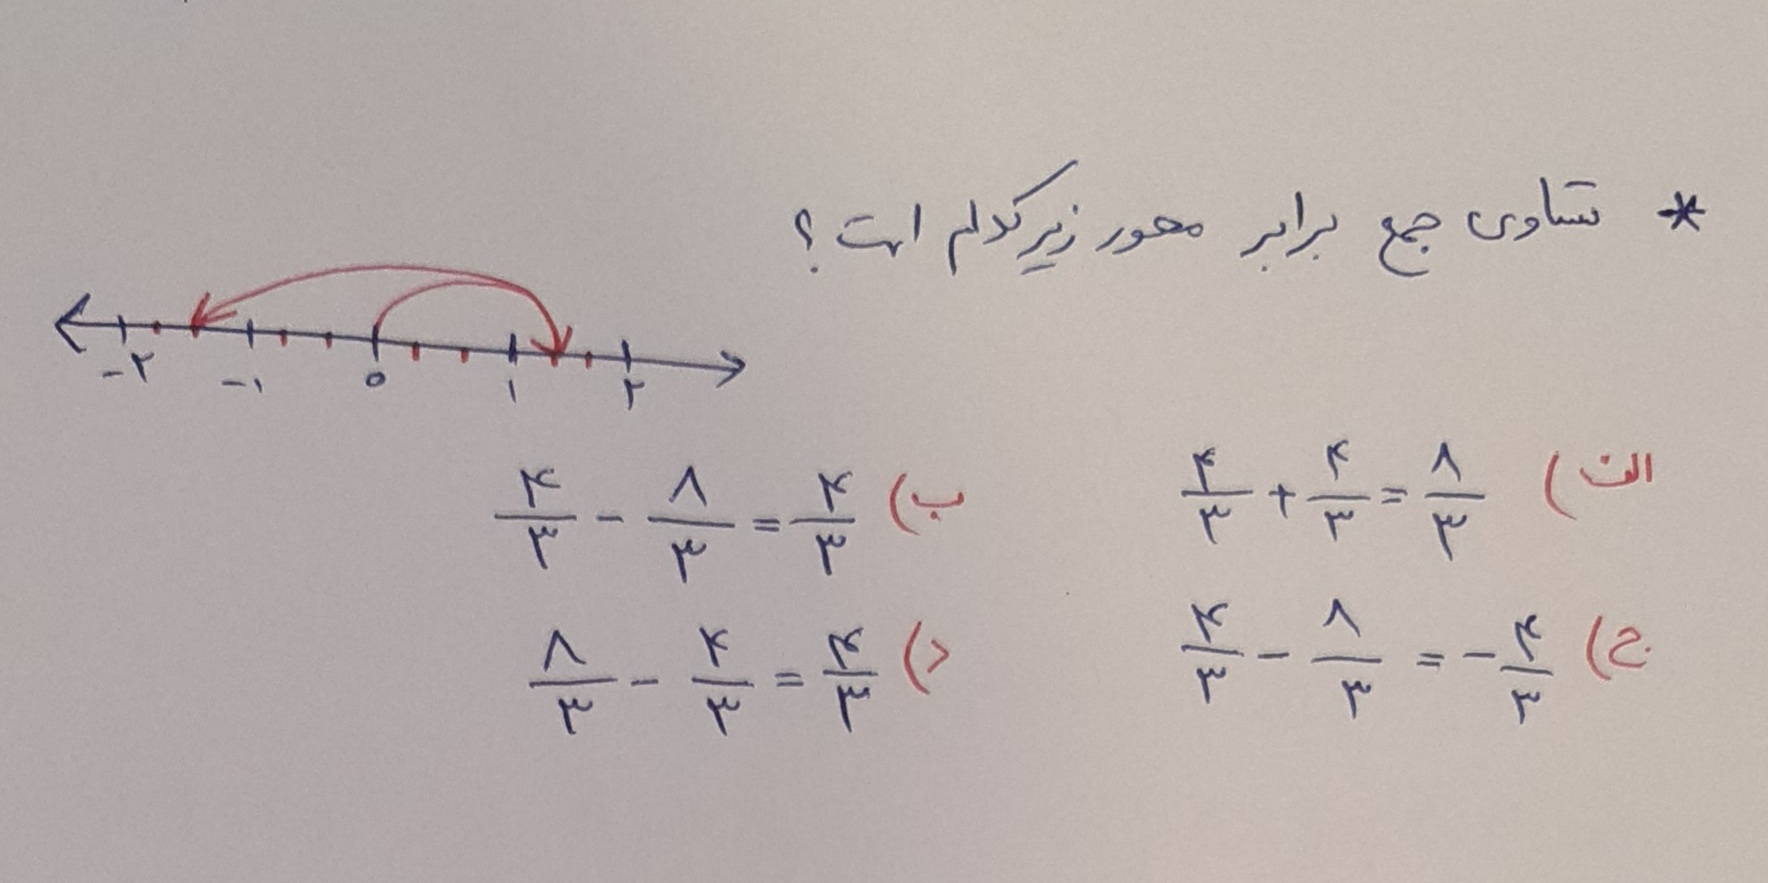 * تساوی جمع برابر محور زیر کدام است؟
-۲ -۱ ۰ ۱ ۲
الف) ۴/۳ + ۴/۳ = ۸/۳
ب) ۴/۳ - ۸/۳ = ۴/۳
ج) ۴/۳ - ۸/۳ = -۴/۳
د) ۸/۳ - ۴/۳ = ۴/۳